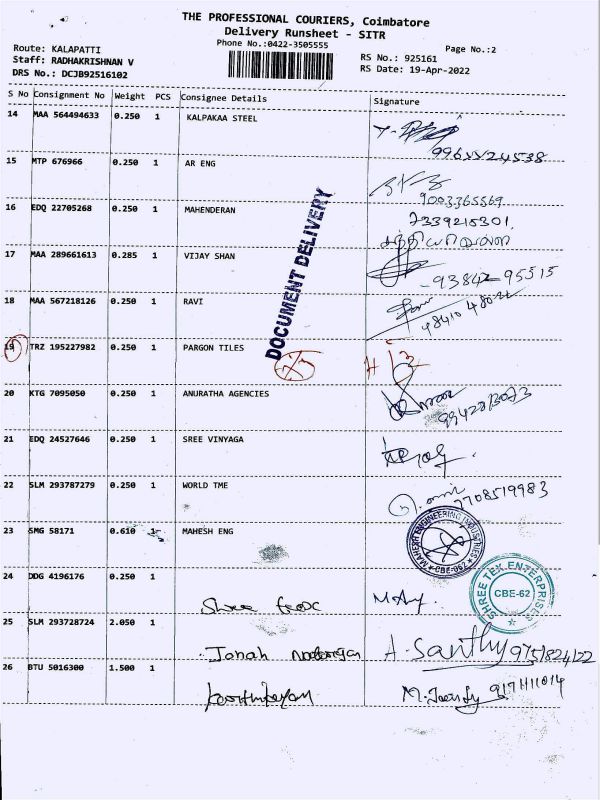 THE PROFESSIONAL COURIERS, Coimbatore
Delivery Runsheet - SITR
Phone No.:0422-3505555
Page No.:2
Route: KALAPATTI
RS No.: 925161
Staff: RADHAKRISHNAN V
RS Date: 19-Apr-2022
DRS No.: DCJB92516102
S No Consignment No Weight PCS Consignee Details Signature
14 MAA 564494633 0.250 1 KALPAKAA STEEL
15 MTP 676966 0.250 1 AR ENG
9003365569
16 EDQ 22705268 0.250 1 MAHENDERAN
7339215301
DOCUMENT DELIVERY
17 MAA 289661613 0.285 1 VIJAY SHAN
93842 95515
18 MAA 567218126 0.250 1 RAVI
19 TRZ 195227982 0.250 1 PARGON TILES
20 KTG 7095050 0.250 1 ANURATHA AGENCIES
21 EDQ 24527646 0.250 1 SREE VINYAGA
22 SLM 293787279 0.250 1 WORLD TME
7708519983
23 SMG 58171 0.610 1 MAHESH ENG
MAHESH ENGINEERING INDUSTRIES
CBE-062
24 DDG 4196176 0.250 1
SHREE TEX ENTERPRISES
CBE-62
25 SLM 293728724 2.050 1
A. Santhy 9751824122
26 BTU 5016300 1.500 1